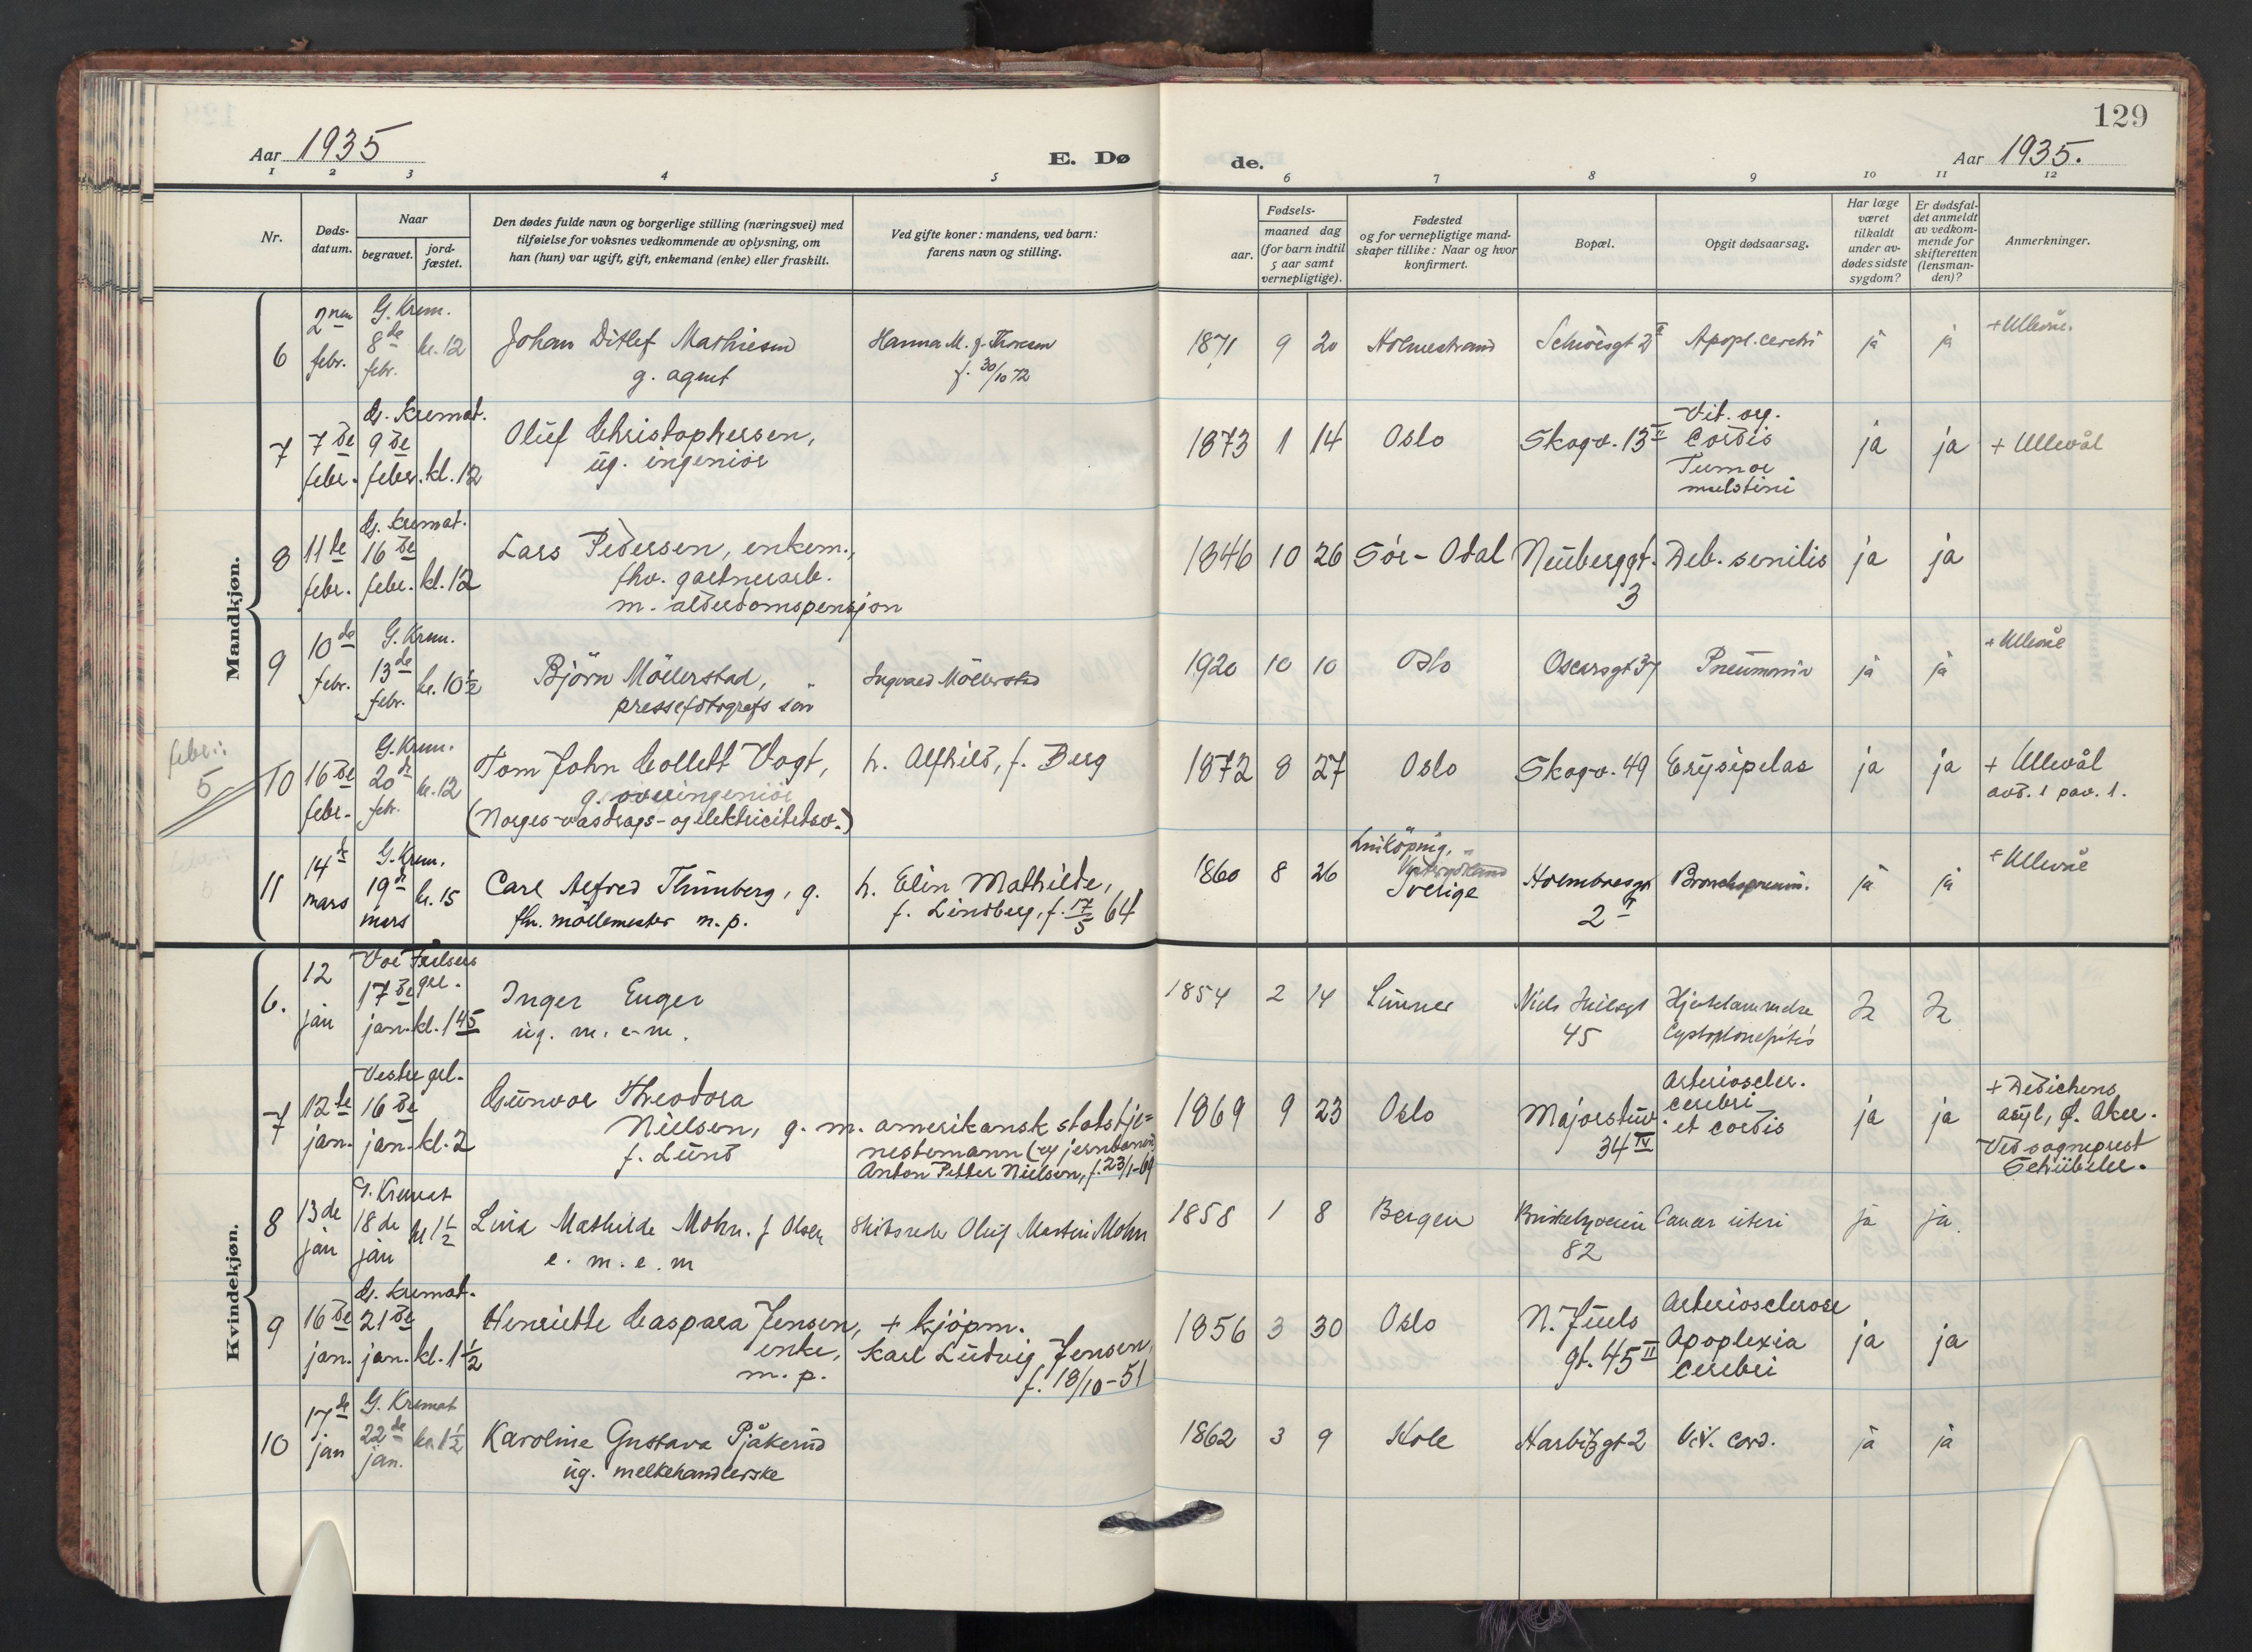 129
Aar 1935
E. Dø
de.
Aar 1935.
1 2 3 4 5 6 7 8 9 10 11 12
Nr.
Døds-
datum.
Naar
begravet.
jord-
fæstet.
Den dødes fulde navn og borgerlige stilling (næringsvei) med
tilføielse for voksnes vedkommende av oplysning, om
han (hun) var ugift, gift, enkemand (enke) eller fraskilt.
Ved gifte koner: mandens, ved barn:
farens navn og stilling.
Fødsels-
aar.
maaned dag
(for barn indtil
5 aar samt
vernepligtige).
Fødested
og for vernepligtige mand-
skaper tillike: Naar og hvor
konfirmert.
Bopæl.
Opgit dødsaarsag.
Har læge
været
tilkaldt
under av-
dødes sidste
sygdom?
Er dødsfal-
det anmeldt
av vedkom-
mende for
skifteretten
(lensman-
den)?
Anmerkninger.
Mandkjøn.
6
2nen
febr.
G. Krem.
8de
febr.
kl. 12
Johan Ditlef Mathiesen
g. agent
Hanna M. f. Thoresen
f. 30/10 72
1871 9 20 Holmestrand
Apopl. cerebri
ja ja
+ Ullevål.
7
7de
febr.
G. Kremat.
9de
febr. kl. 12
Oluf Christophersen,
ug. ingeniør
1873 1 14 Oslo Skogv. 13 II
Vit. org.
Cordis
Tumor
ja ja + Ullevål
8
11te
febr.
G. Kremat.
16de
febr. kl. 12
Lars Pedersen, enkem.,
fhv. gartnerarb.
m. alderdomspensjon
1846 10 26 Sør-Odal Neuberggt.
3
Deb. senilis ja ja
9
10de
febr.
G. Krem.
13de
febr.
kl. 10 1/2
Björn Möllerstad,
pressefotografs sön
Ingvald Möllerstad
1920 10 10 Oslo Oscarsgt 37 Pneumoni ja ja
+ Ullevål
febr.:
5
10
16de
febr.
G. Krem.
20de
febr.
kl. 12
Tom John Collett Vogt,
g. overingeniør
(Norges vasdrags- og elektricitetsv.)
h. Alfhild, f. Berg
1872 8 27 Oslo Skogv. 49 Erysipelas ja ja
+ Ullevål
avd. 1 pav. 1.
11
14de
mars
G. Krem.
19de
mars
kl. 15
Carl Alfred Thunberg, g.
fhv. möllemester m. p.
h. Elin Mathilde,
f. Lindberg, f. 17/5 64
1860 8 26
Linköping,
Sverige
2 II
Bronchopneum.
ja ja
+ Ullevål
Kvindekjøn.
6.
12
jan
Vor Frelsers
17de grl.
jan. kl. 1 45
Inger Enger
ug. m. e. m.
1854 2 14 Lunner
Niels Juelsgt
45
Ja Ja
7
12te
jan.
Vestre grl.
16de
jan. kl. 2
Gunvor Theodora
Nielsen, g. m. amerikansk statstje=
f. Lund
nestemann (ey jernbanen)
Anton Petter Nielsen, f. 23/1-69
1869 9 23 Oslo
Majorstuv.
34 IV
Arterioscler.
cerebri
et cordis
ja ja
+ Dedichens
asyl, Ø. Aker.
Ved sogneprest
Schübeler.
8
13de
jan
G. Kremat
18de
jan
kl 1 1/2
Lina Mathilde Mohn. f Olsen
e. m. e. m
Skibsreder Oluf Martin Mohn
1858 1 8 Bergen
Briskebyveien
82
Cancer uteri ja ja.
9
16de
jan.
G. Kremat.
21de
jan. kl. 1 1/2
Henriette Caspara Jensen,
enke,
m. p.
+ kjøpm.
Karl Ludvig Jensen,
f. 18/10-51
1856 3 30 Oslo
N. Juels
gt. 45 II
Arteriosclerose
Apoplexia
Cerebri
ja ja
10
17de
jan
G. Kremat
22de
jan.
kl. 1 1/2
Karoline Gustava Pjåkerud
ug. melkehandlerske
1862 3 9 Hole Harbitzgt 2 Vit. cord. ja ja